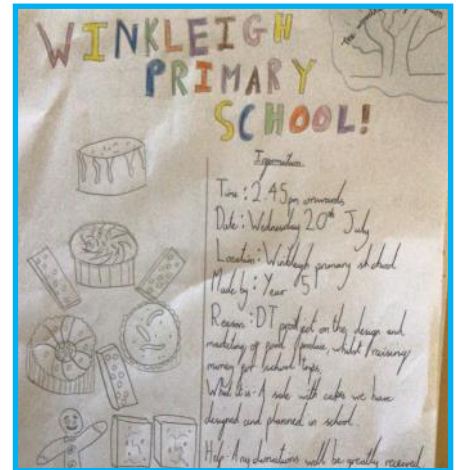 WINKLEIGH
PRIMARY
SCHOOL!
Information
Time: 2.45pm onwards
Date: Wednesday 20th July
Location: Winkleigh primary school
Made by: Year 5
Reason: DT project on the design and
marketing of food produce, whilst raising
money for school trips.
What it is: A sale with cakes we have
designed and planned in school.
Help- Any donations will be greatly received.